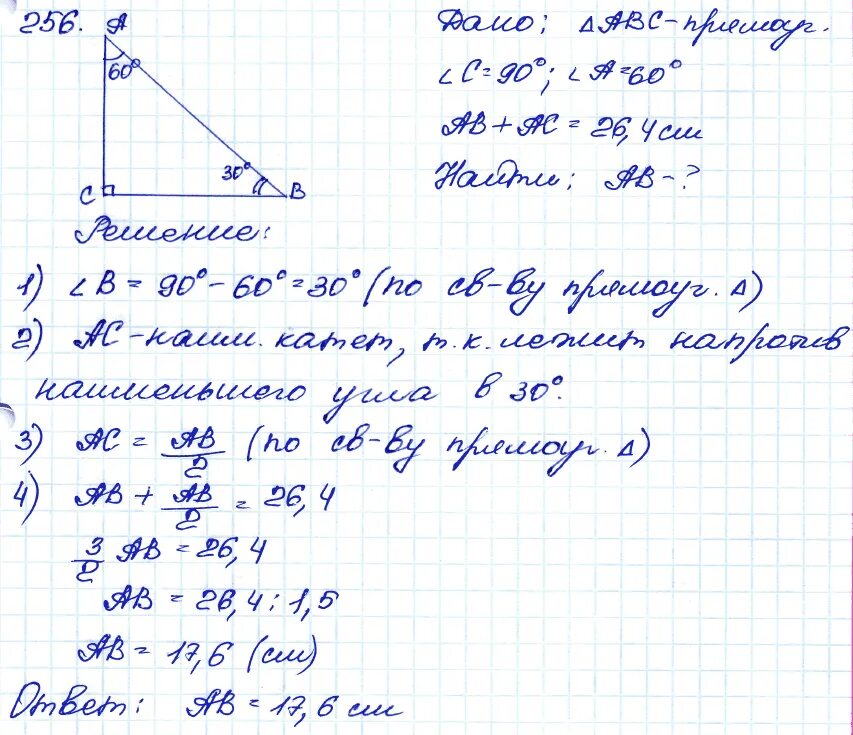 256.
A
60°
C
30°
B
Дано; △ABC-прямоуг.
∠C=90°; ∠A=60°
AB+AC=26,4см
Найти; AB-?
Решение:
1) ∠B = 90°-60°=30° (по св-ву прямоуг. △)
2) AC-наим. катет, т.к. лежит напротив
наименьшего угла в 30°.
3) AC = AB/2 (по св-ву прямоуг. △)
4) AB + AB/2 = 26,4
3/2 AB = 26,4
AB = 26,4 : 1,5
AB = 17,6 (см)
Ответ: AB = 17,6 см